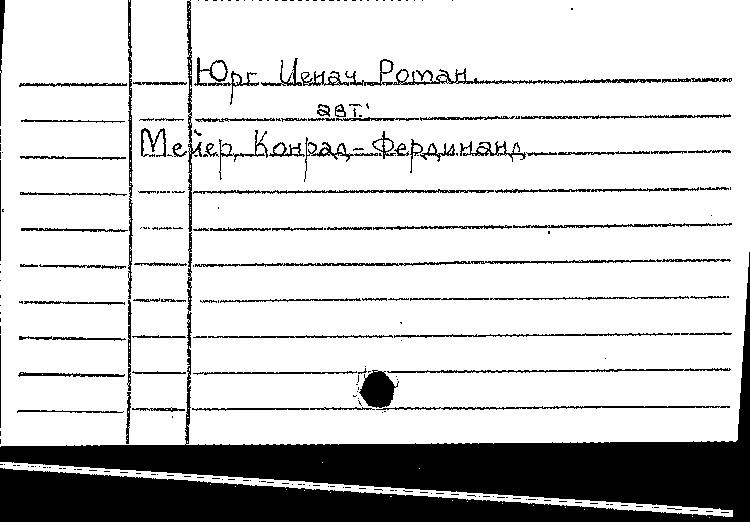 Юрг Иенач. Роман.
авт.:
Мейер, Конрад-Фердинанд